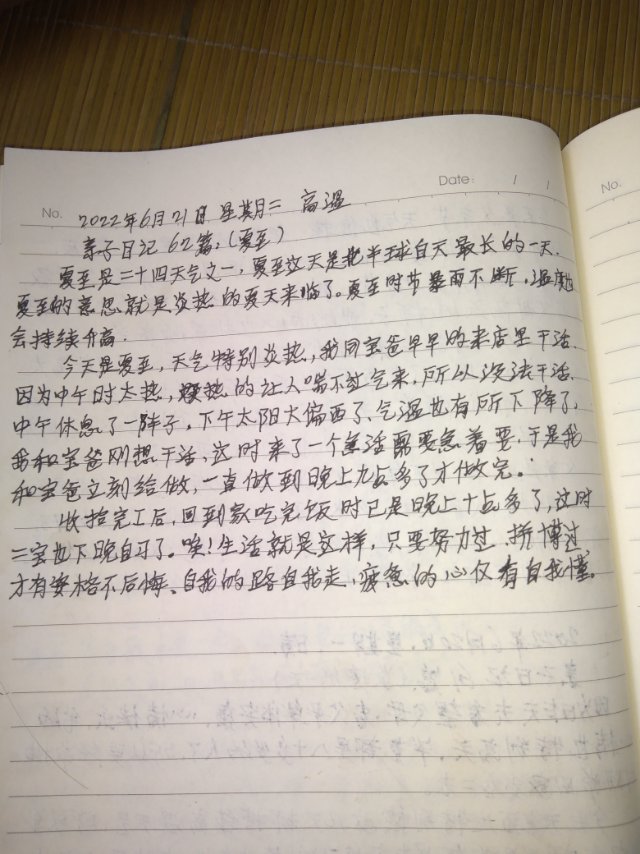 No.
Date: / /
No.
2022年6月21日 星期二 高温
亲子日记62篇:(夏至)
夏至是二十四天气之一,夏至这天是北半球白天最长的一天.
夏至的意思就是炎热的夏天来临了。夏至时节暴雨不断,温度也
会持续升高.
今天是夏至,天气特别炎热,我同宝爸早早的来店里干活.
因为中午时太热,热的让人喘不过气来,所以没法干活.
中午休息了一阵子,下午太阳大偏西了、气温也有所下降了,
我和宝爸刚想干活,这时来了一个急活需要急着要,于是我
和宝爸立刻给做,一直做到晚上九点多了才做完。
收拾完工后,回到家吃完饭时已是晚上十点多了,这时
二宝也下晚自习了。唉!生活就是这样,只要努力过,拼博过,
才有资格不后悔、自我的路自我走,疲惫的心仅有自我懂。